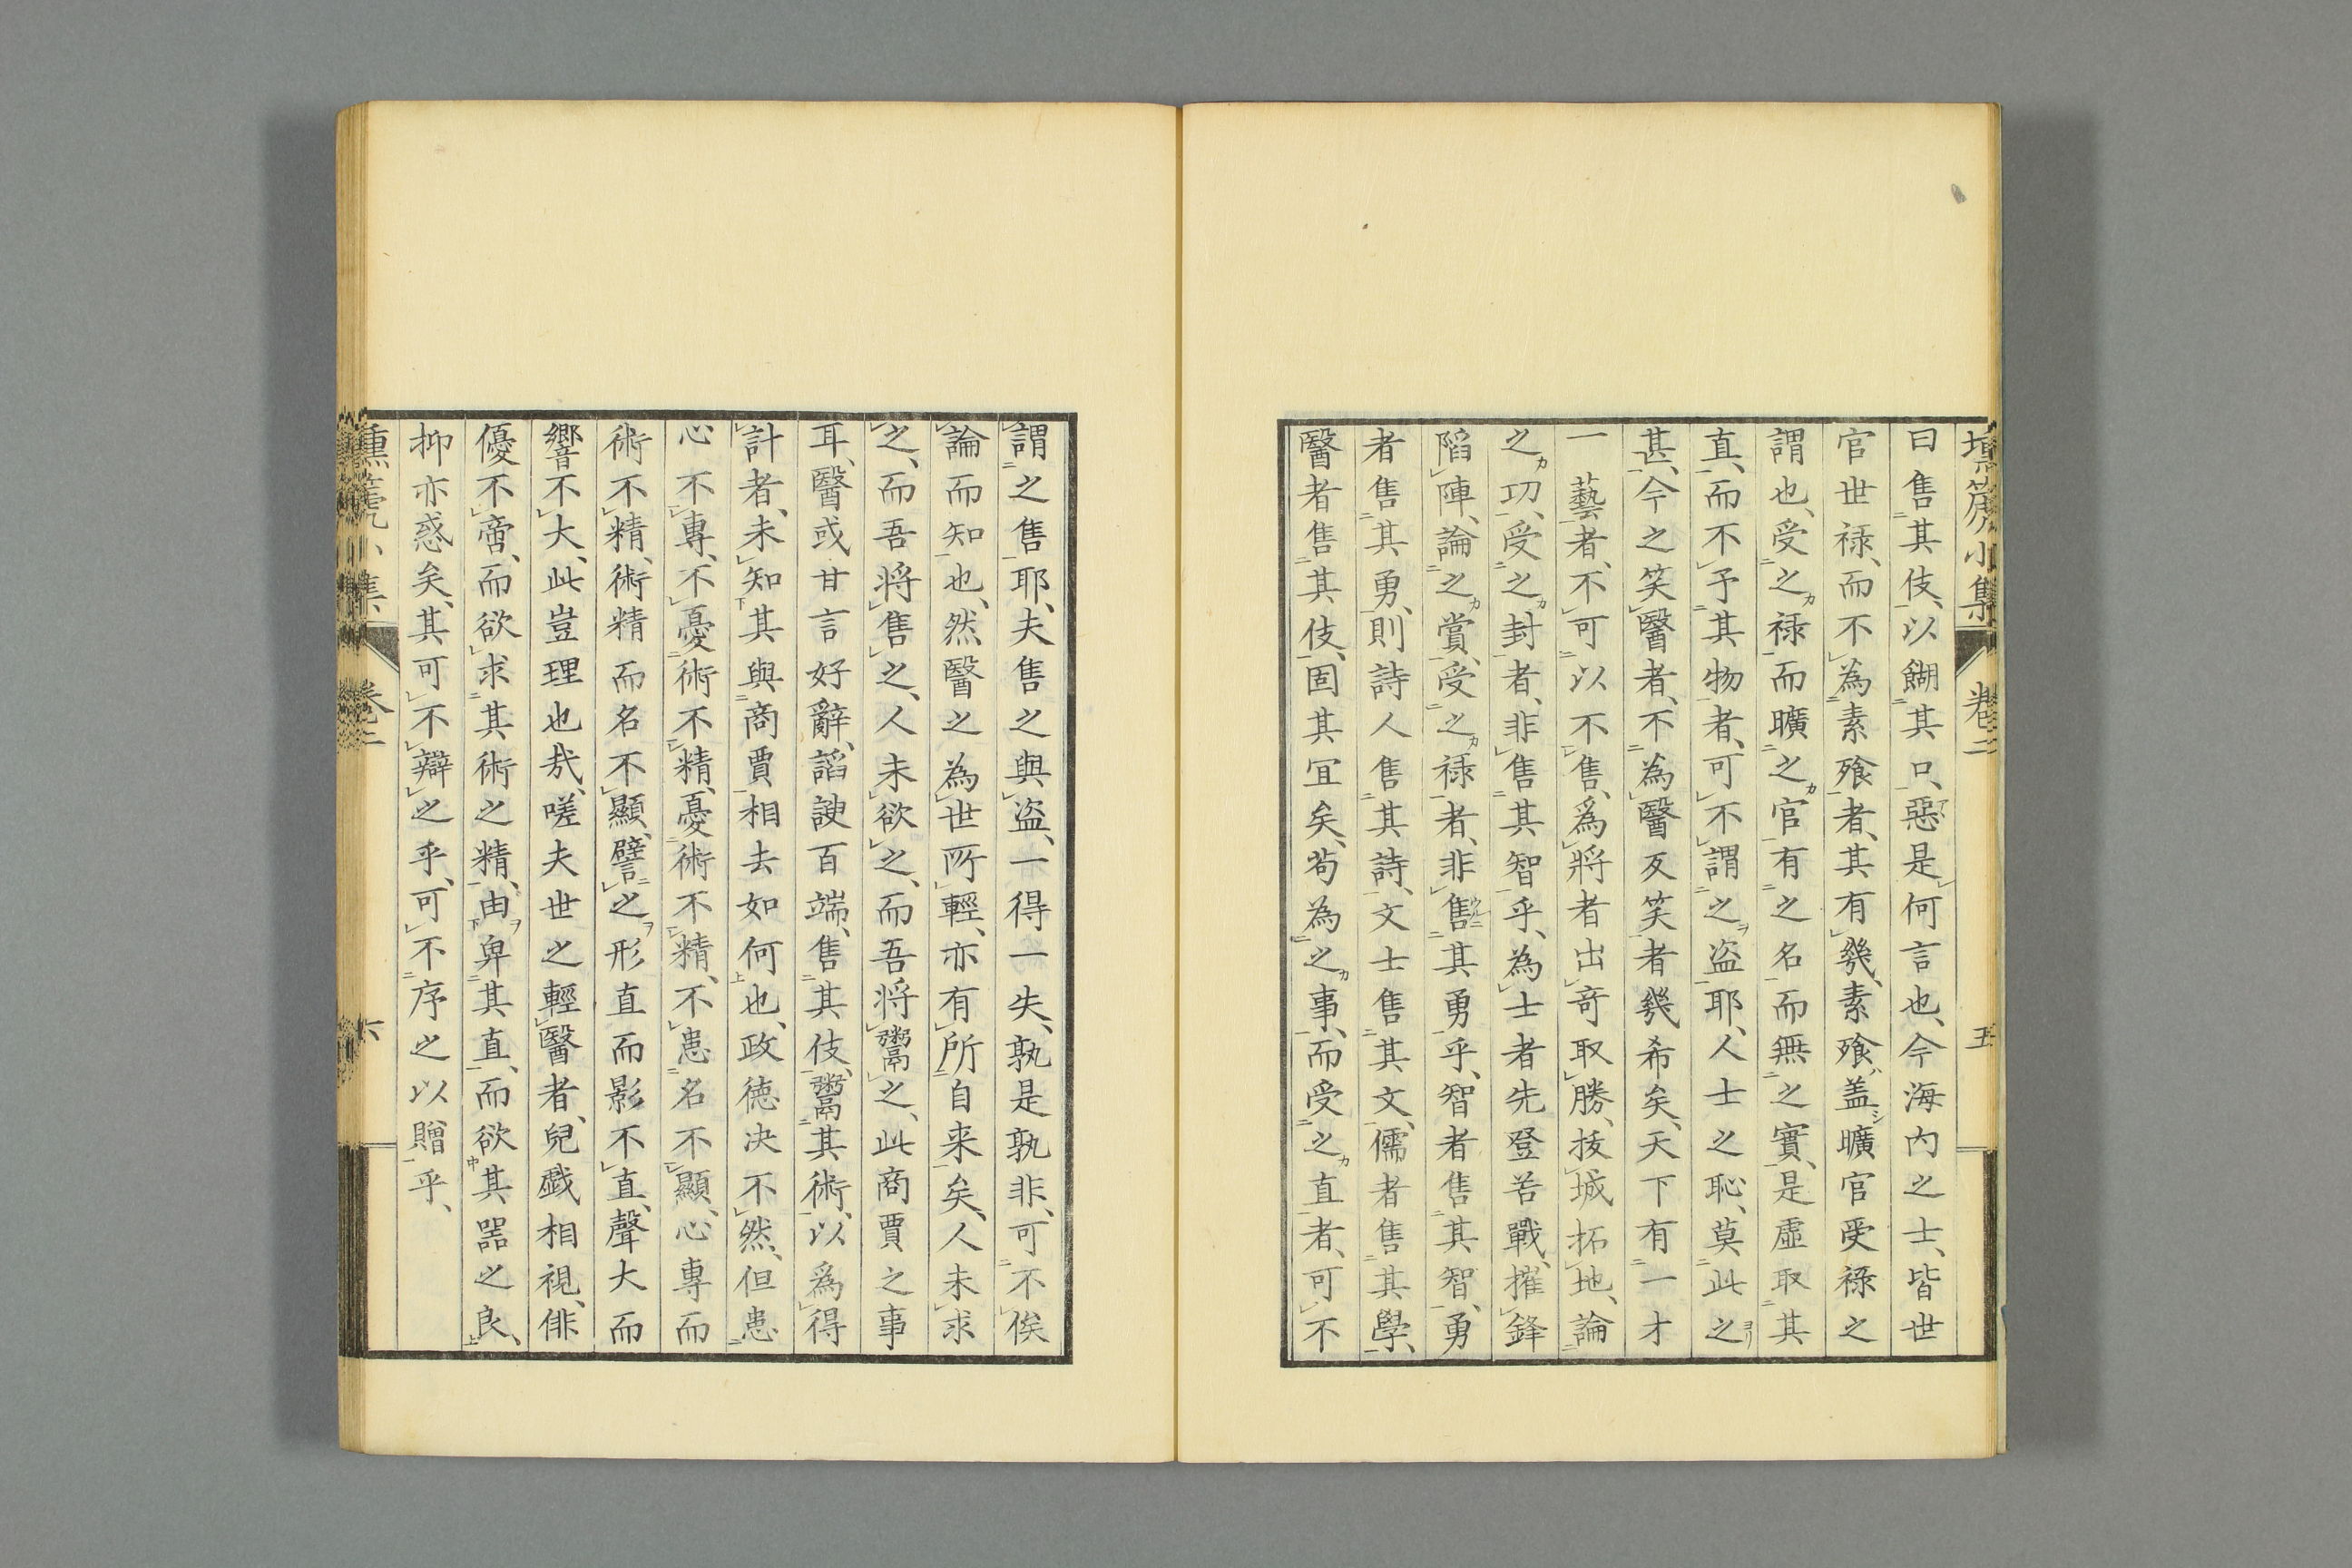 壎箎小集 卷二 五
曰售其伎、以餬其口、惡是何言也、今海內之士、皆世
官世禄、而不為素飱者、其有幾、素飱盖曠官受禄之
謂也、受之禄而曠之官、有之名而無之實、是虛取其
直、而不予其物者、可不謂之盗耶、人士之恥、莫此之
甚、今之笑醫者、不為醫反笑者幾希矣、天下有一才
一藝者、不可以不售、爲將者出奇取勝、拔城拓地、論
之功、受之封者、非售其智乎、為士者先登苦戰、摧鋒
陷陣、論之賞、受之禄者、非售其勇乎、智者售其智、勇
者售其勇、則詩人售其詩、文士售其文、儒者售其學、
醫者售其伎、固其冝矣、茍為之事、而受之直者、可不
謂之售耶、夫售之與盗、一得一失、孰是孰非、可不俟
論而知也、然醫之為世所輕、亦有所自来矣、人未求
之、而吾将售之、人未欲之、而吾将鬻之、此商賈之事
耳、醫或甘言好辭、謟諛百端、售其伎、鬻其術、以爲得
計者、未知其與商賈相去如何也、政德决不然、但患
心不專、不憂術不精、憂術不精、不患名不顯、心專而
術不精、術精而名不顯、譬之形直而影不直、聲大而
響不大、此豈理也㢤、嗟夫世之輕醫者、兒戲相視、俳
優不啻、而欲求其術之精、由卑其直、而欲其噐之良、
抑亦惑矣、其可不辯之乎、可不序之以贈乎、
壎箎小集 卷二 六